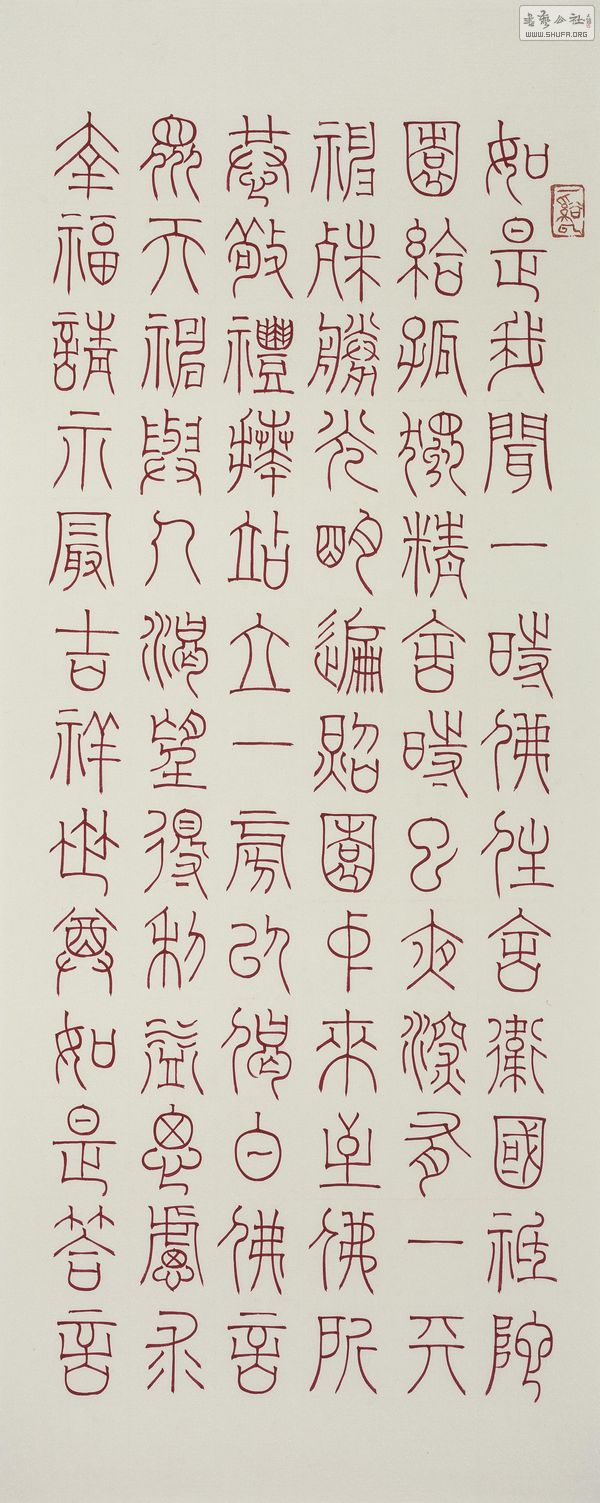 如是我聞一時佛住舍衛國祇陀
園給孤獨精舍時已夜深有一天
神殊勝光明遍照園中來至佛所
恭敬禮拜站立一旁以偈白佛言
眾天神與人渴望得利益思慮求
幸福請示最吉祥世尊如是答言
書藝公社
WWW.SHUFA.ORG